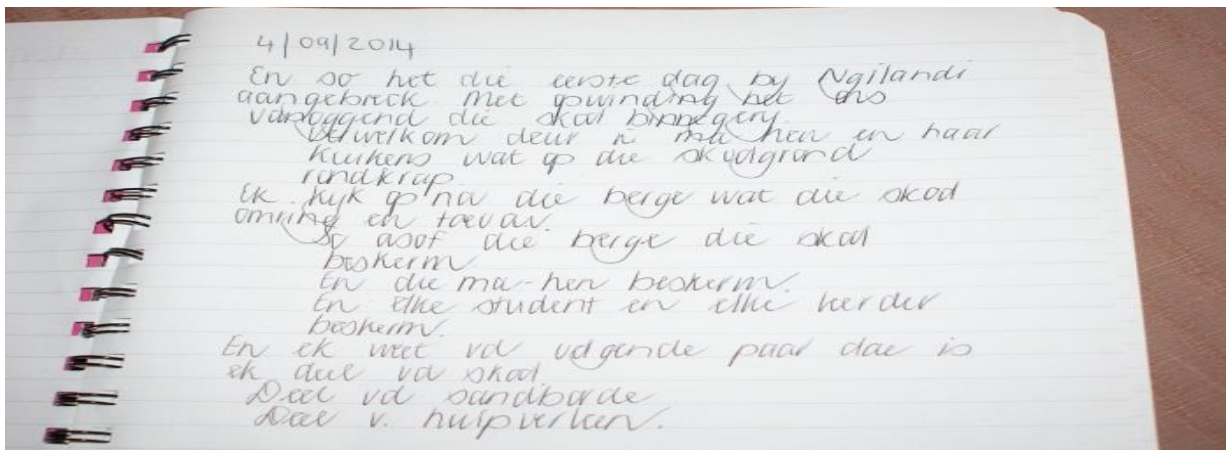 4/09/2014
En so het die eerste dag by Ngilandi
aangebreek. Met opwinding het ons
vanoggend die skool binnegery.
Verwelkom deur 'n ma hen en haar
kuikens wat op die skoolgrond
rondkrap.
Ek kyk op na die berge wat die skool
omring en toevou.
So asof die berge die skool
beskerm.
En die ma-hen beskerm.
En elke student en elke leerder
beskerm.
En ek weet vd volgende paar dae is
ek deel vd skool
Deel vd sandborde
Deel v. hulpverleen.